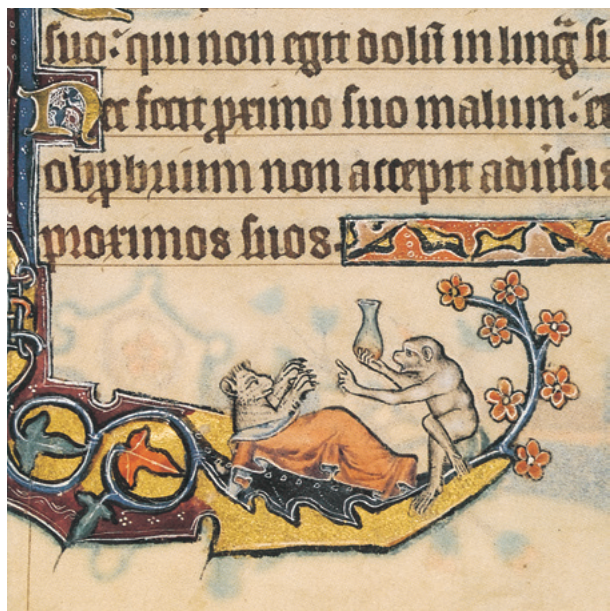 suo: qui non egit dolū in ling̃ su
Nec fecit ꝓximo suo malum: et
obꝓbrium non accepit adu̾sus
proximos suos.